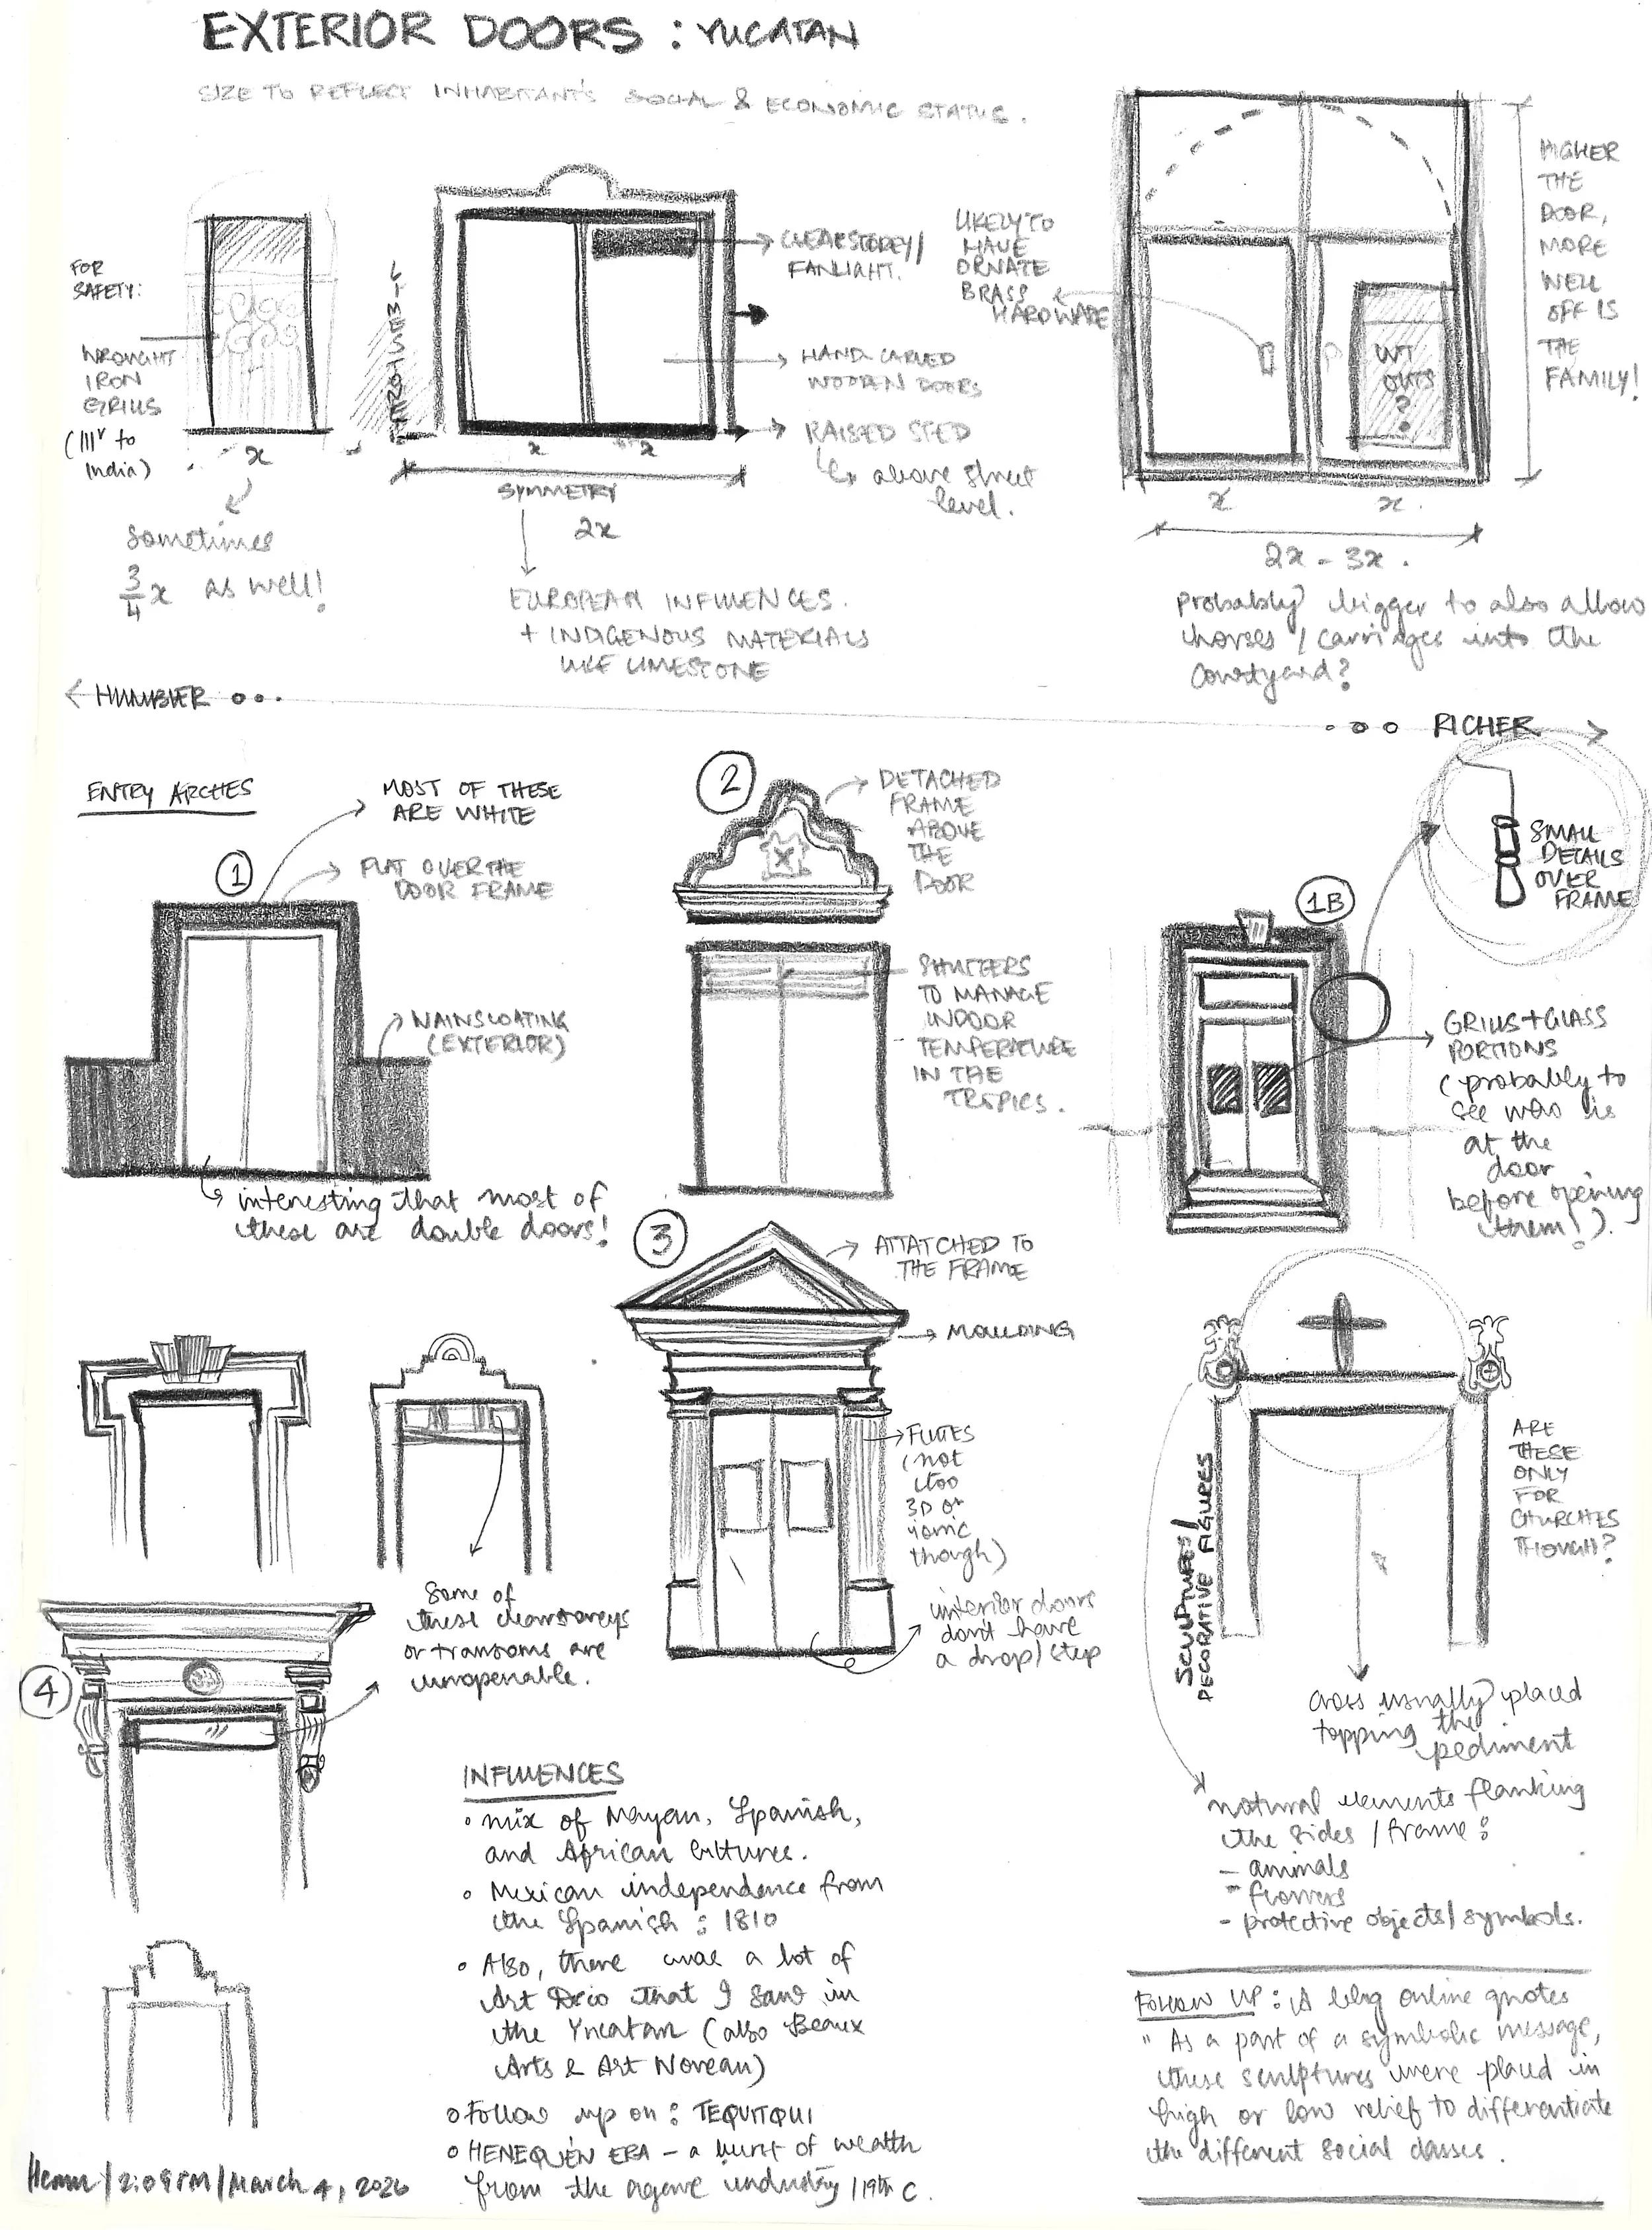 EXTERIOR DOORS : YUCATAN
SIZE TO REFLECT INHABITANT'S SOCIAL & ECONOMIC STATUS.
FOR
SAFETY:
WROUGHT
IRON
GRILLS
to
India)
x
sometimes
3/4 x as well!
LIMESTONE
CLEARSTOREY/
FANLIGHT.
HAND CARVED
WOODEN DOORS
RAISED STEP
above street
level.
x x
SYMMETRY
2x
EUROPEAN INFLUENCES.
+ INDIGENOUS MATERIALS
LIKE LIMESTONE
LIKELY TO
HAVE
ORNATE
BRASS
HARDWARE
OUTS
?
?
HIGHER
THE
DOOR,
MORE
WELL
OFF IS
THE
FAMILY!
x x.
2x - 3x.
probably bigger to also allow
horses / carriages into the
courtyard?
HUMBLER
RICHER
ENTRY ARCHES
MOST OF THESE
ARE WHITE
1
FLAT OVER THE
DOOR FRAME
WAINSCOATING
(EXTERIOR)
interesting that most of
these are double doors!
2
DETACHED
FRAME
ABOVE
THE
DOOR
SHUTTERS
TO MANAGE
INDOOR
TEMPERATURE
IN THE
TROPICS.
1B
SMALL
DETAILS
OVER
FRAME
GRILLS+GLASS
PORTIONS
(probably to
see who is
at the
door
before opening
them!).
3
ATTATCHED TO
THE FRAME
MOULDING
FLUTES
(not
too
3D or
ionic
though)
interior doors
don't have
a drop/step
Some of
these clearstoreys
or transoms are
unopenable.
4
SCULPTURES/
DECORATIVE FIGURES
ARE
THESE
ONLY
FOR
CHURCHES
THOUGH?
cross usually placed
topping the
pediment
natural elements flanking
the sides / frame:
- animals
- flowers
- protective objects/symbols.
INFLUENCES
• mix of Mayan, Spanish,
and African cultures.
• Mexican independence from
the Spanish : 1810
• Also, there was a lot of
Art Deco that I saw in
the Yucatan (also Beaux
Arts & Art Noveau)
• Follow up on : TEQUITQUI
• HENEQUÉN ERA - a burst of wealth
from the agave industry / 19th C.
FOLLOW UP : A blog online quotes
" As a part of a symbolic message,
these sculptures were placed in
high or low relief to differentiate
the different social classes.
/2:09PM/March 4, 2026